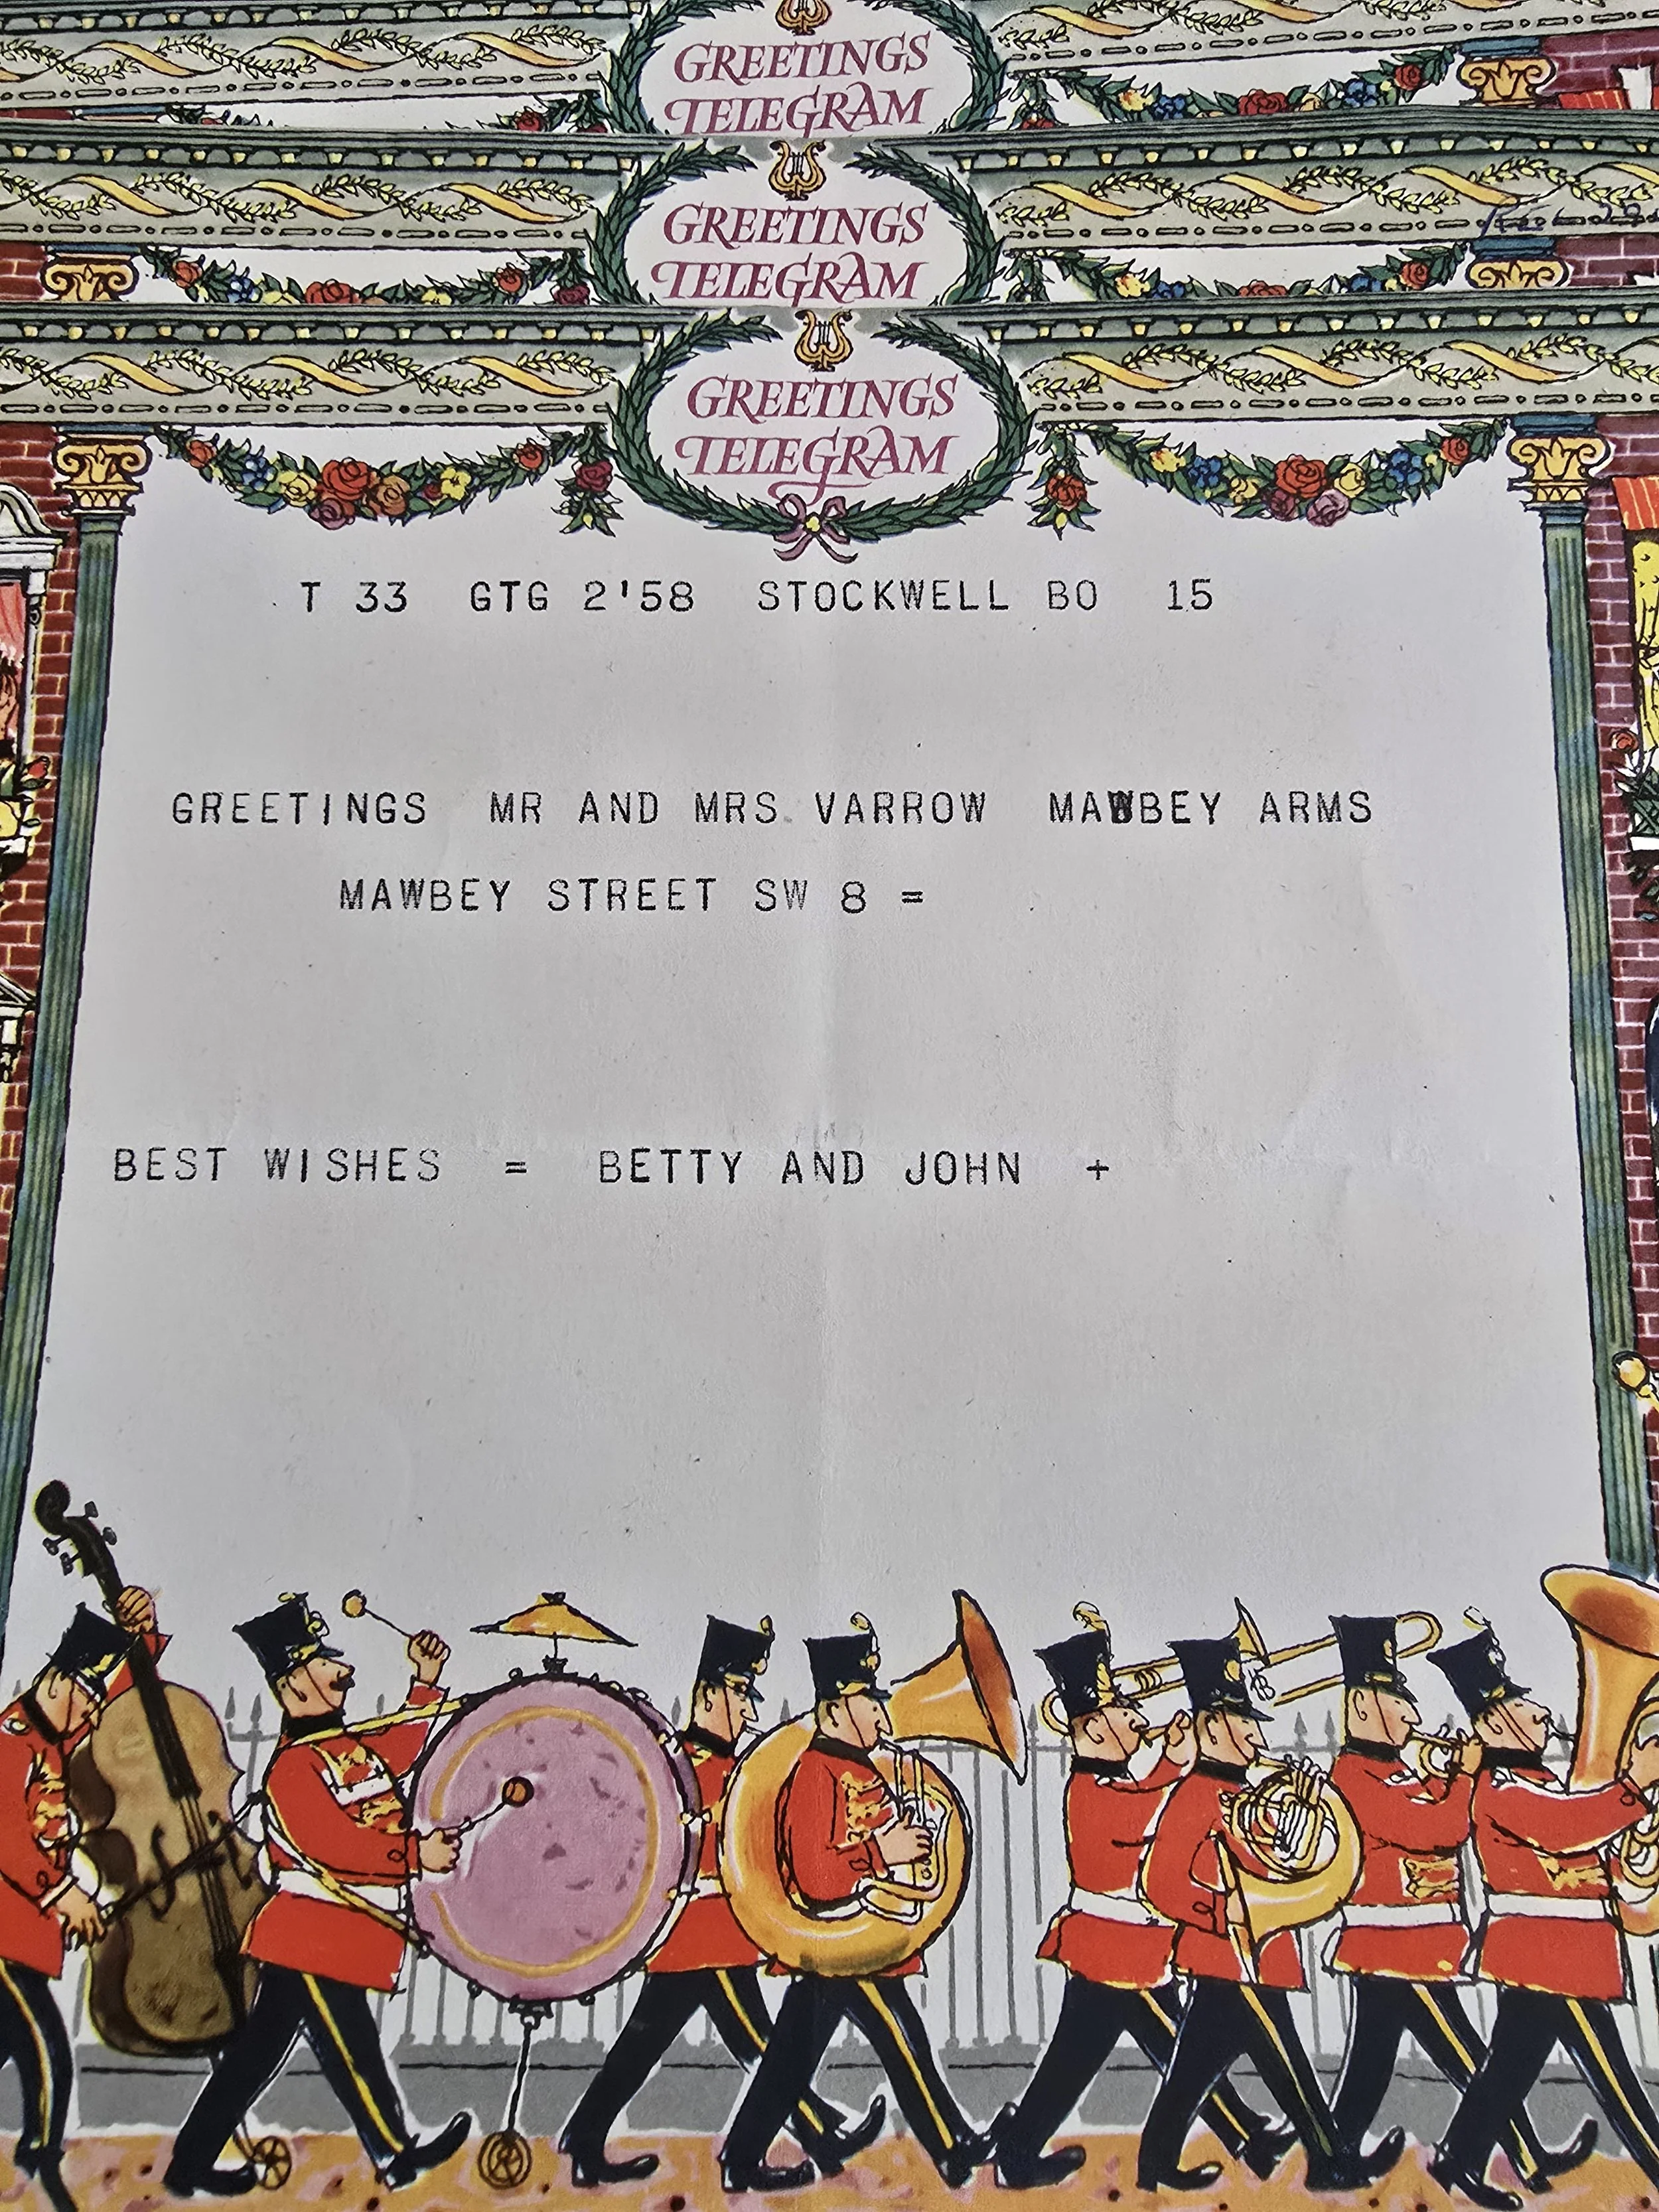 GREETINGS
TELEGRAM
GREETINGS
TELEGRAM
GREETINGS
TELEGRAM
T 33 GTG 2'58 STOCKWELL BO 15
GREETINGS MR AND MRS VARROW MAWBEY ARMS
MAWBEY STREET SW 8 =
BEST WISHES = BETTY AND JOHN +